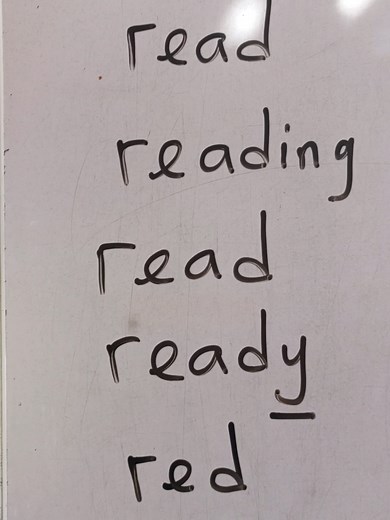 read
reading
read
ready
red